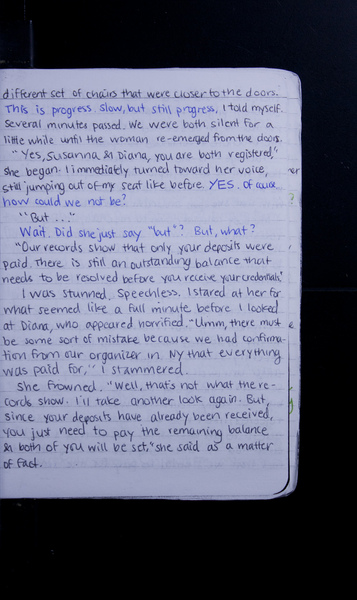 different set of chairs that were closer to the doors.
This is progress. Slow, but still progress, I told myself.
Several minutes passed. We were both silent for a
little while until the woman re-emerged from the doors.
"Yes, Susanna & Diana, you are both registered,"
she began. I immediately turned toward her voice,
still jumping out of my seat like before. YES. Of course,
how could we not be?
"But..."
Wait. Did she just say "but"? But, what?
"Our records show that only your deposits were
paid. There is still an outstanding balance that
needs to be resolved before you receive your credentials."
I was stunned. Speechless. I stared at her for
what seemed like a full minute before I looked
at Diana, who appeared horrified. "Umm, there must
be some sort of mistake because we had confirma-
tion from our organizer in NY that everything
was paid for," I stammered.
She frowned. "Well, that's not what the re-
cords show. I'll take another look again. But,
since your deposits have already been received,
you just need to pay the remaining balance
& both of you will be set," she said as a matter
of fact.